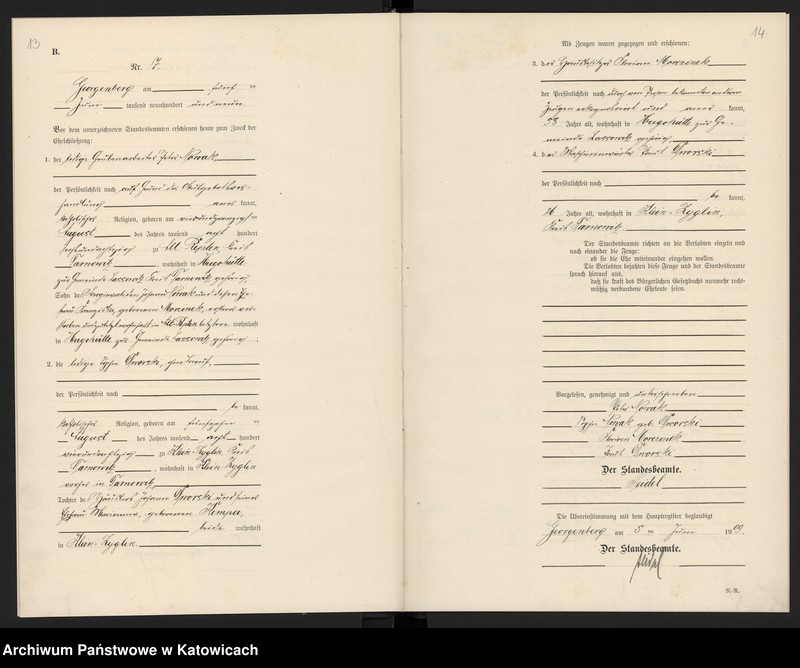 13
B.
Nr. 7.
Georgenberg am fünf
Juni tausend neunhundert und neun
Vor dem unterzeichneten Standesbeamten erschienen heute zum Zweck der
Eheschließung:
1. der ledige Grubenarbeiter Peter Nowak,
der Persönlichkeit nach auf Grund der Aufgebotsver-
handlung aner kannt,
katholischer Religion, geboren am vierundzwanzig
August des Jahres tausend acht hundert
zu Alt-Repten Kreis
Tarnowitz, wohnhaft in Hugohütte
zur Gemeinde Lassowitz Kreis Tarnowitz gehörig,
Sohn des Johann Nowak und dessen Ehe-
frau geborenen ver-
storben und zuletzt wohnhaft in Alt-Repten letztere wohnhaft
in Hugohütte zur Gemeinde Lassowitz gehörig;
2. die ledige Sophie Dworski, ohne Beruf,
der Persönlichkeit nach
be kannt,
katholischer Religion, geboren am fünfzehn
August des Jahres tausend acht hundert
zu Klein-Zyglin Kreis
Tarnowitz, wohnhaft in Klein-Zyglin
Kreis Tarnowitz,
Tochter des Häuslers Johann Dworski und seiner
Ehefrau Marianna, geborenen Kempa,
beide wohnhaft
in Klein-Zyglin.
14
Als Zeugen waren zugezogen und erschienen:
3. der Hausbesitzer Florian Morczinek
der Persönlichkeit nach durch von Person bekannten anderen
Zeugen und aner kannt,
58 Jahre alt, wohnhaft in Hugohütte zur Ge-
meinde Lassowitz gehörig,
4. der Maschinenwärter Paul Dworski
der Persönlichkeit nach
be kannt,
26 Jahre alt, wohnhaft in Klein-Zyglin,
Kreis Tarnowitz
Der Standesbeamte richtete an die Verlobten einzeln und
nach einander die Frage:
ob sie die Ehe miteinander eingehen wollen.
Die Verlobten bejahten diese Frage und der Standesbeamte
sprach hierauf aus,
daß sie kraft des Bürgerlichen Gesetzbuchs nunmehr recht-
mäßig verbundene Eheleute seien.
Vorgelesen, genehmigt und unterschrieben
Peter Nowak
Sophie Nowak geb. Dworski
Florian Morczinek
Paul Dworski
Der Standesbeamte.
Seidel
Die Übereinstimmung mit dem Hauptregister beglaubigt
Georgenberg am 5 ten Juni 1909.
Der Standesbeamte.
Seidel
R-R.
Archiwum Państwowe w Katowicach